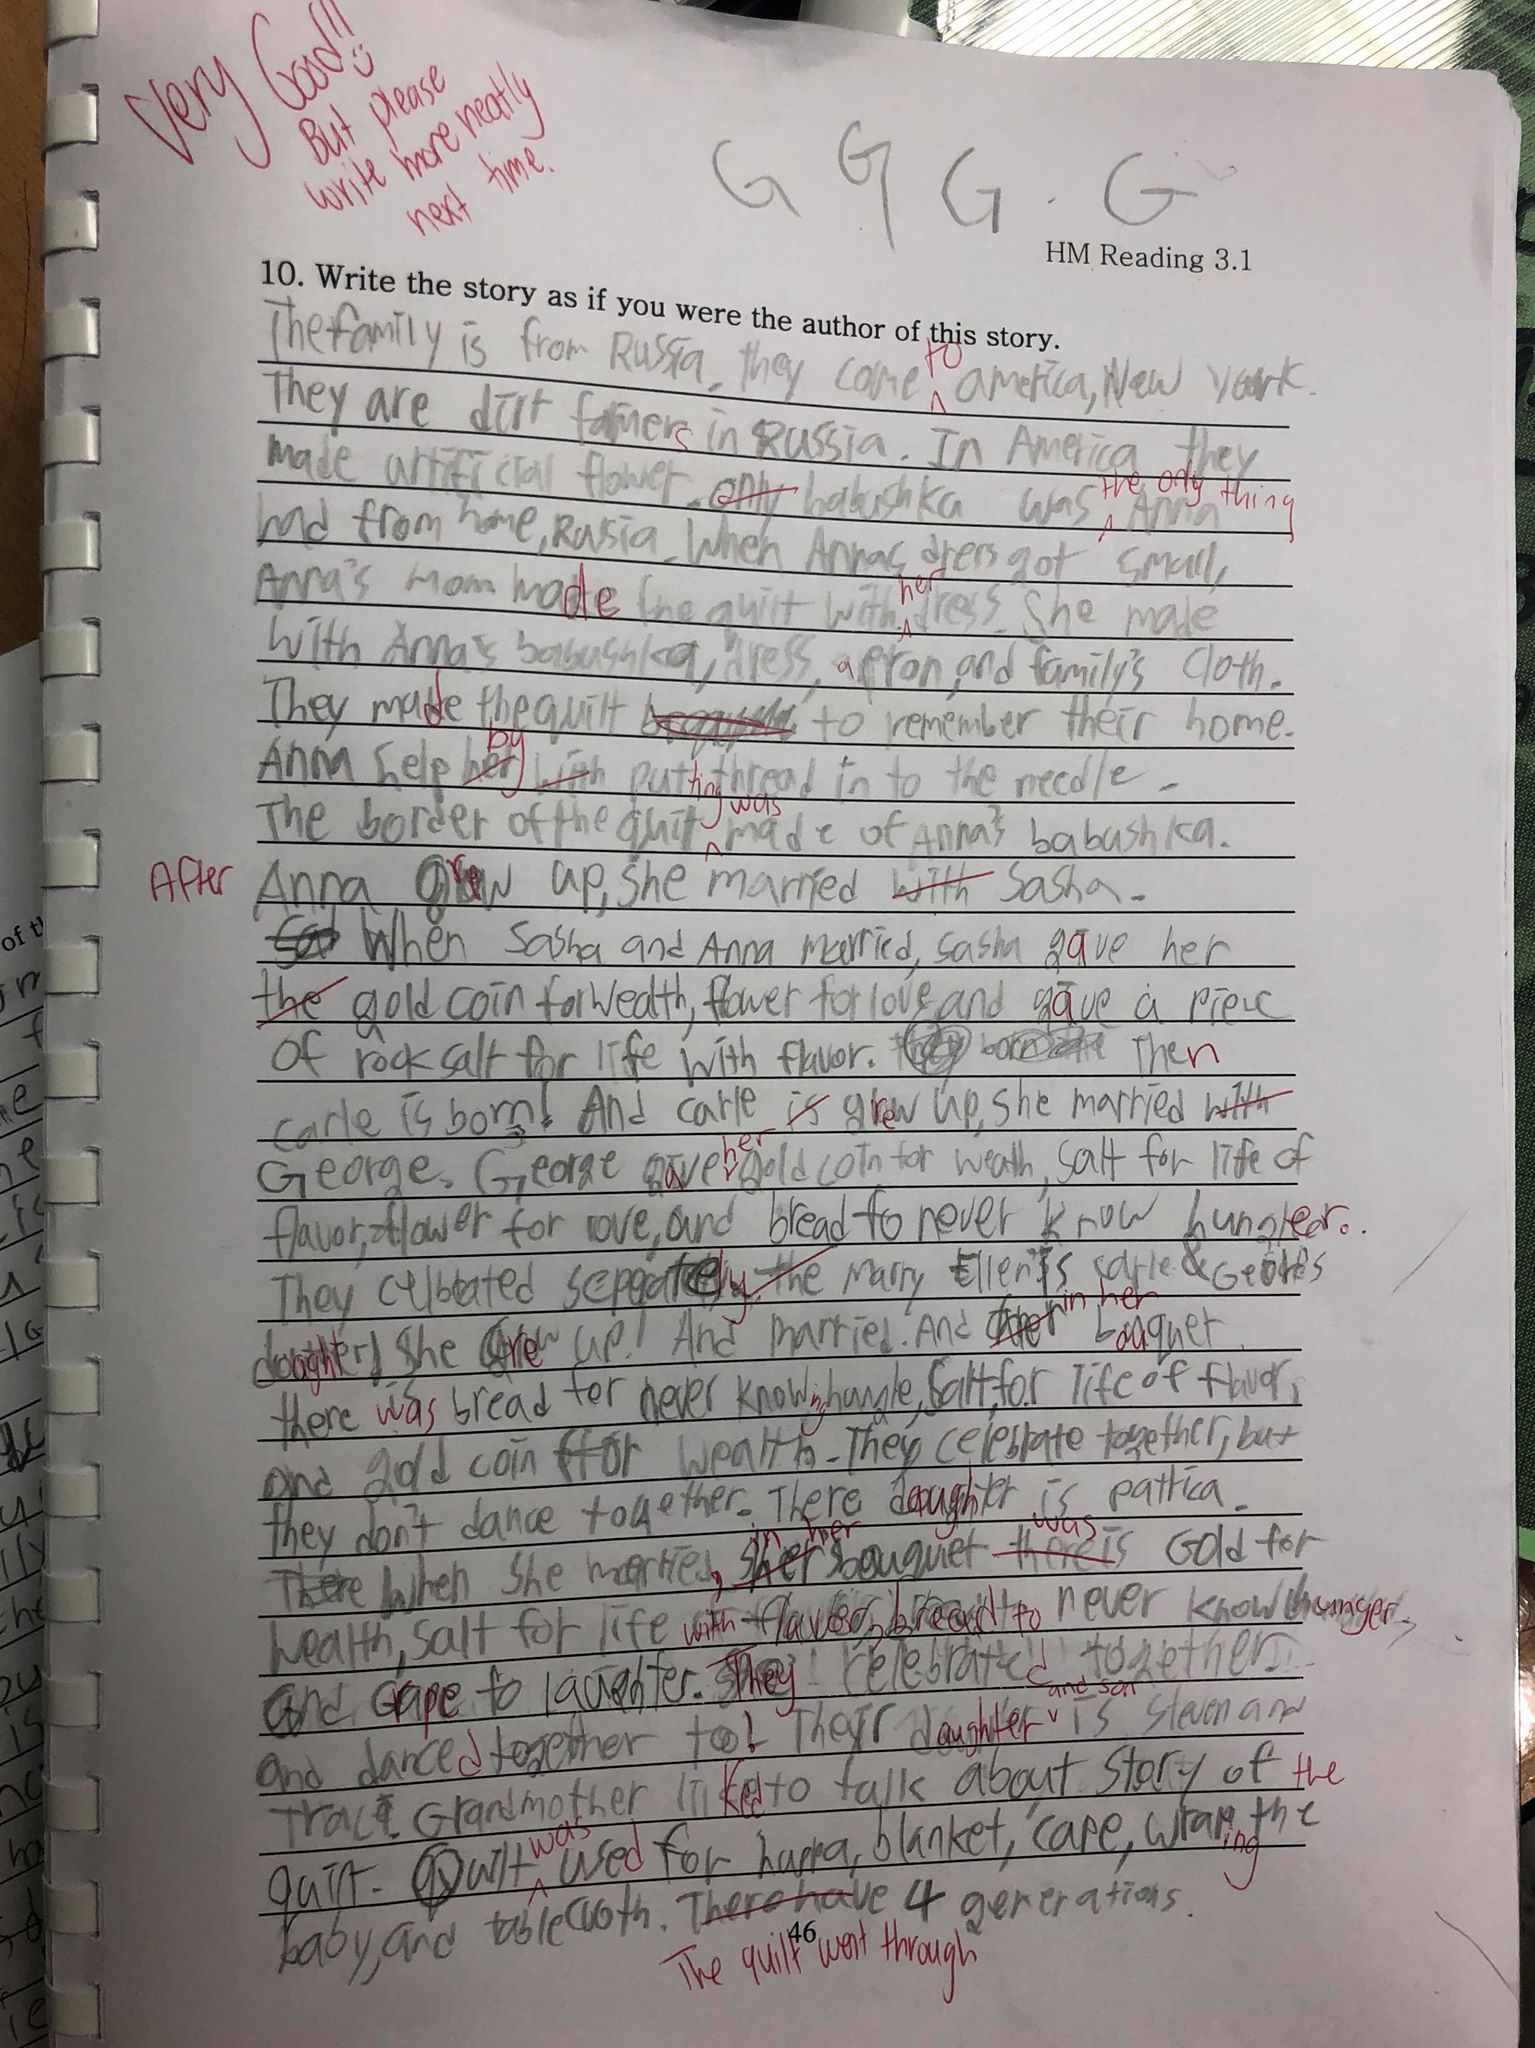 Very Good!!
But please
write more neatly
next time.
G G G . G
HM Reading 3.1
10. Write the story as if you were the author of this story.
The family is from Russia. they come to america, New York.
They are dirt farmers in Russia. In America they
made artificial flower. only babushka was the only thing Anna
had from home, Russia. When Annas dress got small,
Anna's mom made the quilt with her dress. She made
with Anna's babushka, dress, apron, and family's cloth.
They made the quilt to remember their home.
Anna help her by with putting thread in to the needle.
The border of the quilt was made of Anna's babushka.
After Anna grew up, she married with Sasha.
When Sasha and Anna married, Sasha gave her
the gold coin for wealth, flower for love, and gave a piece
of rock salt for life with flavor. Then
carle is born! And carle is grew up, she married with
George. George gave her gold coin for weath, salt for life of
flavor, flower for love, and bread to never know hunger.
They celbrated seperately. the marry Ellen is carle & George's
daughter! She Grew up! And married. And in her bouquet
there was bread for never knowing hungle, Salt for life of flavor,
and gold coin for wealth. They celebrate together, but
they don't dance together. There daughter is patrica.
There When she marries, in her bouquet there is was Gold for
wealth, salt for life with flavor, bread to never know hunger,
and Grape to laughter. They celebrated together
and danced together too! Their daughter and son is Steven and
Traci. Grandmother liked to talk about story of the
quilt. Quilt was used for huppa, blanket, cape, wraping the
baby, and table cloth. There have 4 generations.
46
The quilt went through